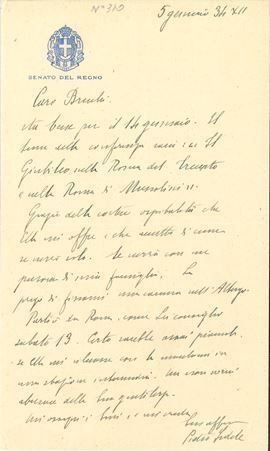 N° 310
5 gennaio 34 XII
SENATO DEL REGNO
Caro Brunti.
sta bene per il 14 gennaio. Il
tema della conferenza sarà: Il
Giubileo nella Roma del Trecento
e nella Roma di Mussolini".
Grazie della cortese ospitalità che
Ella mi offre, e che accetto di cuore
se verrò solo. Se verrò con una
persona di mia famiglia, La
prego di fissarmi una camera nell'Albergo.
Partirò da Roma, come Lei consiglia
sabato 13. Certo sarebbe assai piacevole
se Ella mi rilevasse con la macchina in
una stazione intermedia. Ma non vorrei
abusare della Sua gentilezza.
Mi ossequi i Suoi e mi creda
Suo aff.mo
Pietro Fedele